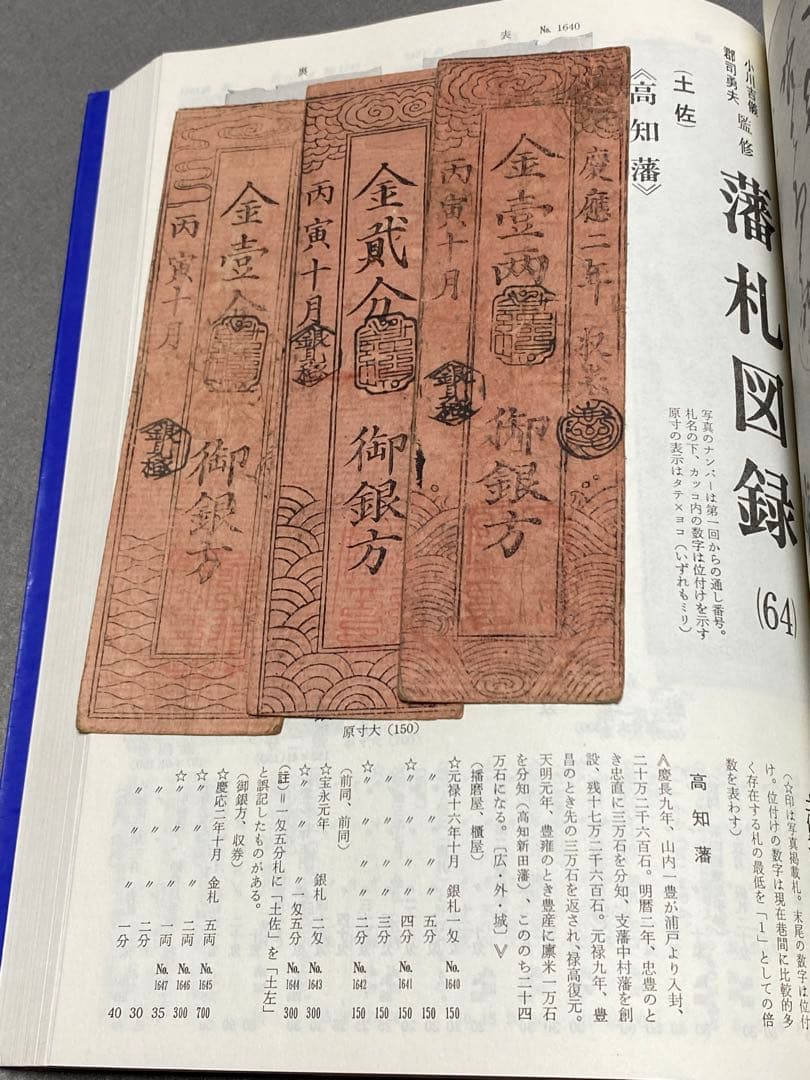 表 No. 1640
裏
小川吉儀
郡司勇夫 監修
藩札図録 (64)
写真のナンバーは第一回からの通し番号。
札名の下、カッコ内の数字は位付けを示す
原寸の表示はタテ×ヨコ(いずれもミリ)
(土佐)
《高知藩》
慶應二年
金壹両
御銀方
丙寅十月
金貳分
御銀方
丙寅十月
金壹分
御銀方
丙寅十月
原寸大(150)
(☆印は写真掲載札。末尾の数字は位付
け。位付けの数字は現在巷間に比較的多
く存在する札の最低を「1」としての倍
数を表わす)
高知藩
∧慶長九年、山内一豊が浦戸より入封、
二十万二千六百石。明暦二年、忠豊のと
き忠直に三万石を分知、支藩中村藩を創
設、残十七万二千六百石。元禄九年、豊
昌のとき先の三万石を返され、禄高復元。
天明元年、豊雍のとき豊産に廩米一万石
を分知(高知新田藩)、こののち二十四
万石になる。〔広・外・城〕∨
(播磨屋、櫃屋)
☆元禄十六年十月 銀札一匁 No. 1640 150
〃 〃 五分 150
☆〃 〃 四分 No. 1641 150
〃 〃 三分 150
☆〃 〃 二分 No. 1642 150
(前同、前同)
☆宝永元年 銀札 二匁 No. 1643 300
☆〃 〃 一匁五分 No. 1644 300
(註)=一匁五分札に「土佐」を「土左」
と誤記したものがある。
(御銀方、収券)
☆慶応二年十月 金札 五両 No. 1645 700
☆〃 〃 二両 No. 1646 300
☆〃 〃 一両 No. 1647 35
〃 〃 二分 30
〃 〃 一分 40